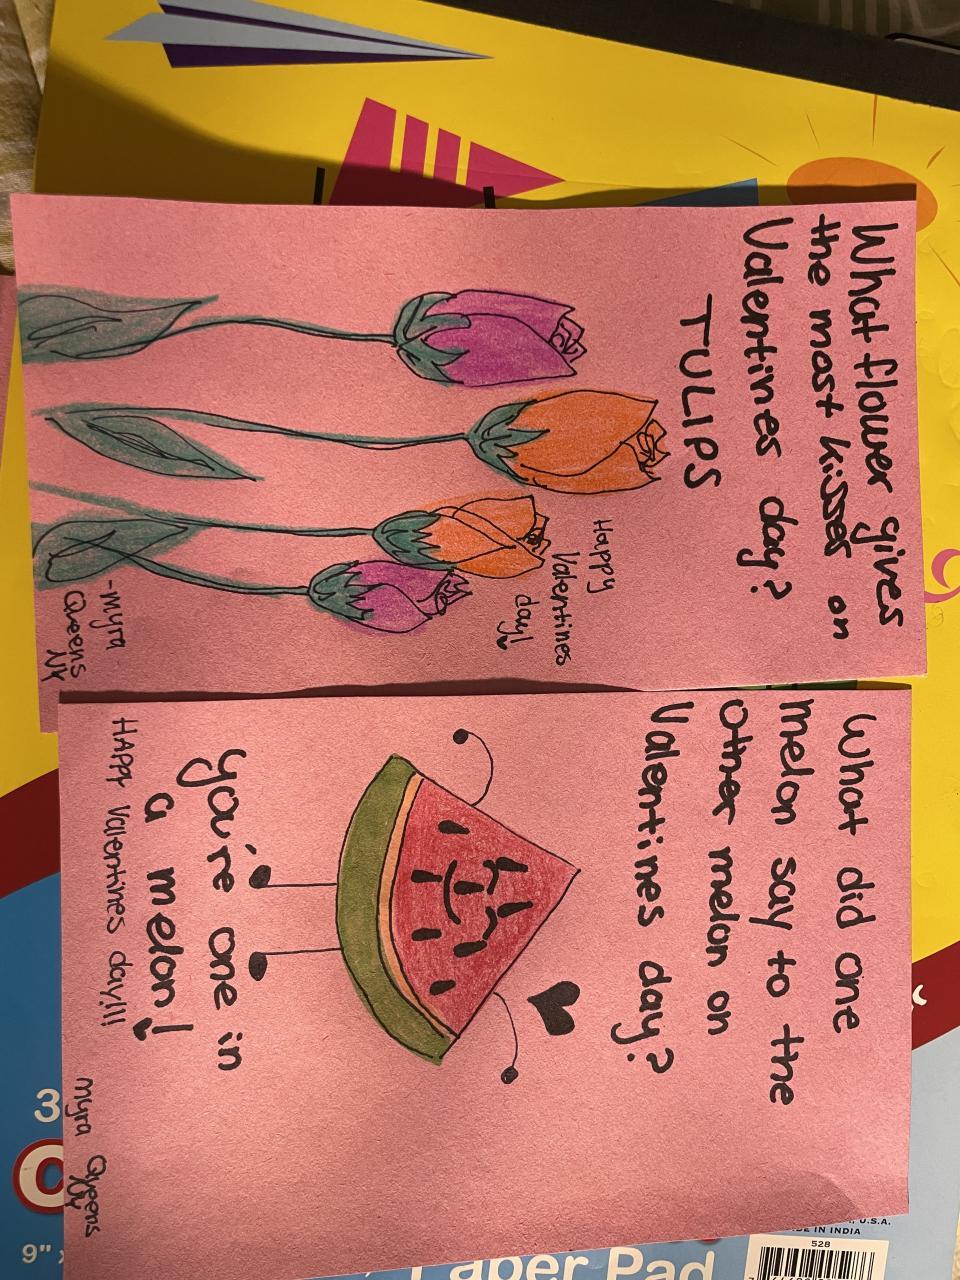 What flower gives
the most kisses on
Valentines day?
TULIPS
Happy
Valentines
day!
-Myra
Queens
NY
What did one
melon say to the
other melon on
Valentines day?
you're one in
a melon!
HAPPY Valentines day!!!
Myra Queens
NY
3
9"
Paper Pad
U.S.A.
IN INDIA
528